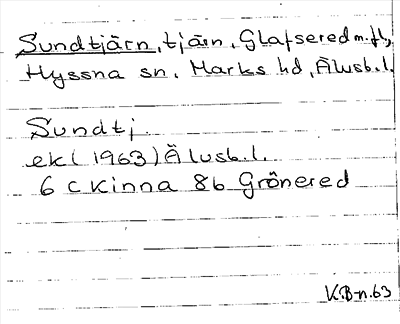 Sundtjärn, tjärn, Glafsered m.fl.,
Hyssna sn, Marks hd, Älvsb.l.
Sundtj.
ek (1963) Älvsb.l.
6 c Kinna 8b Grönered
KB-n.63